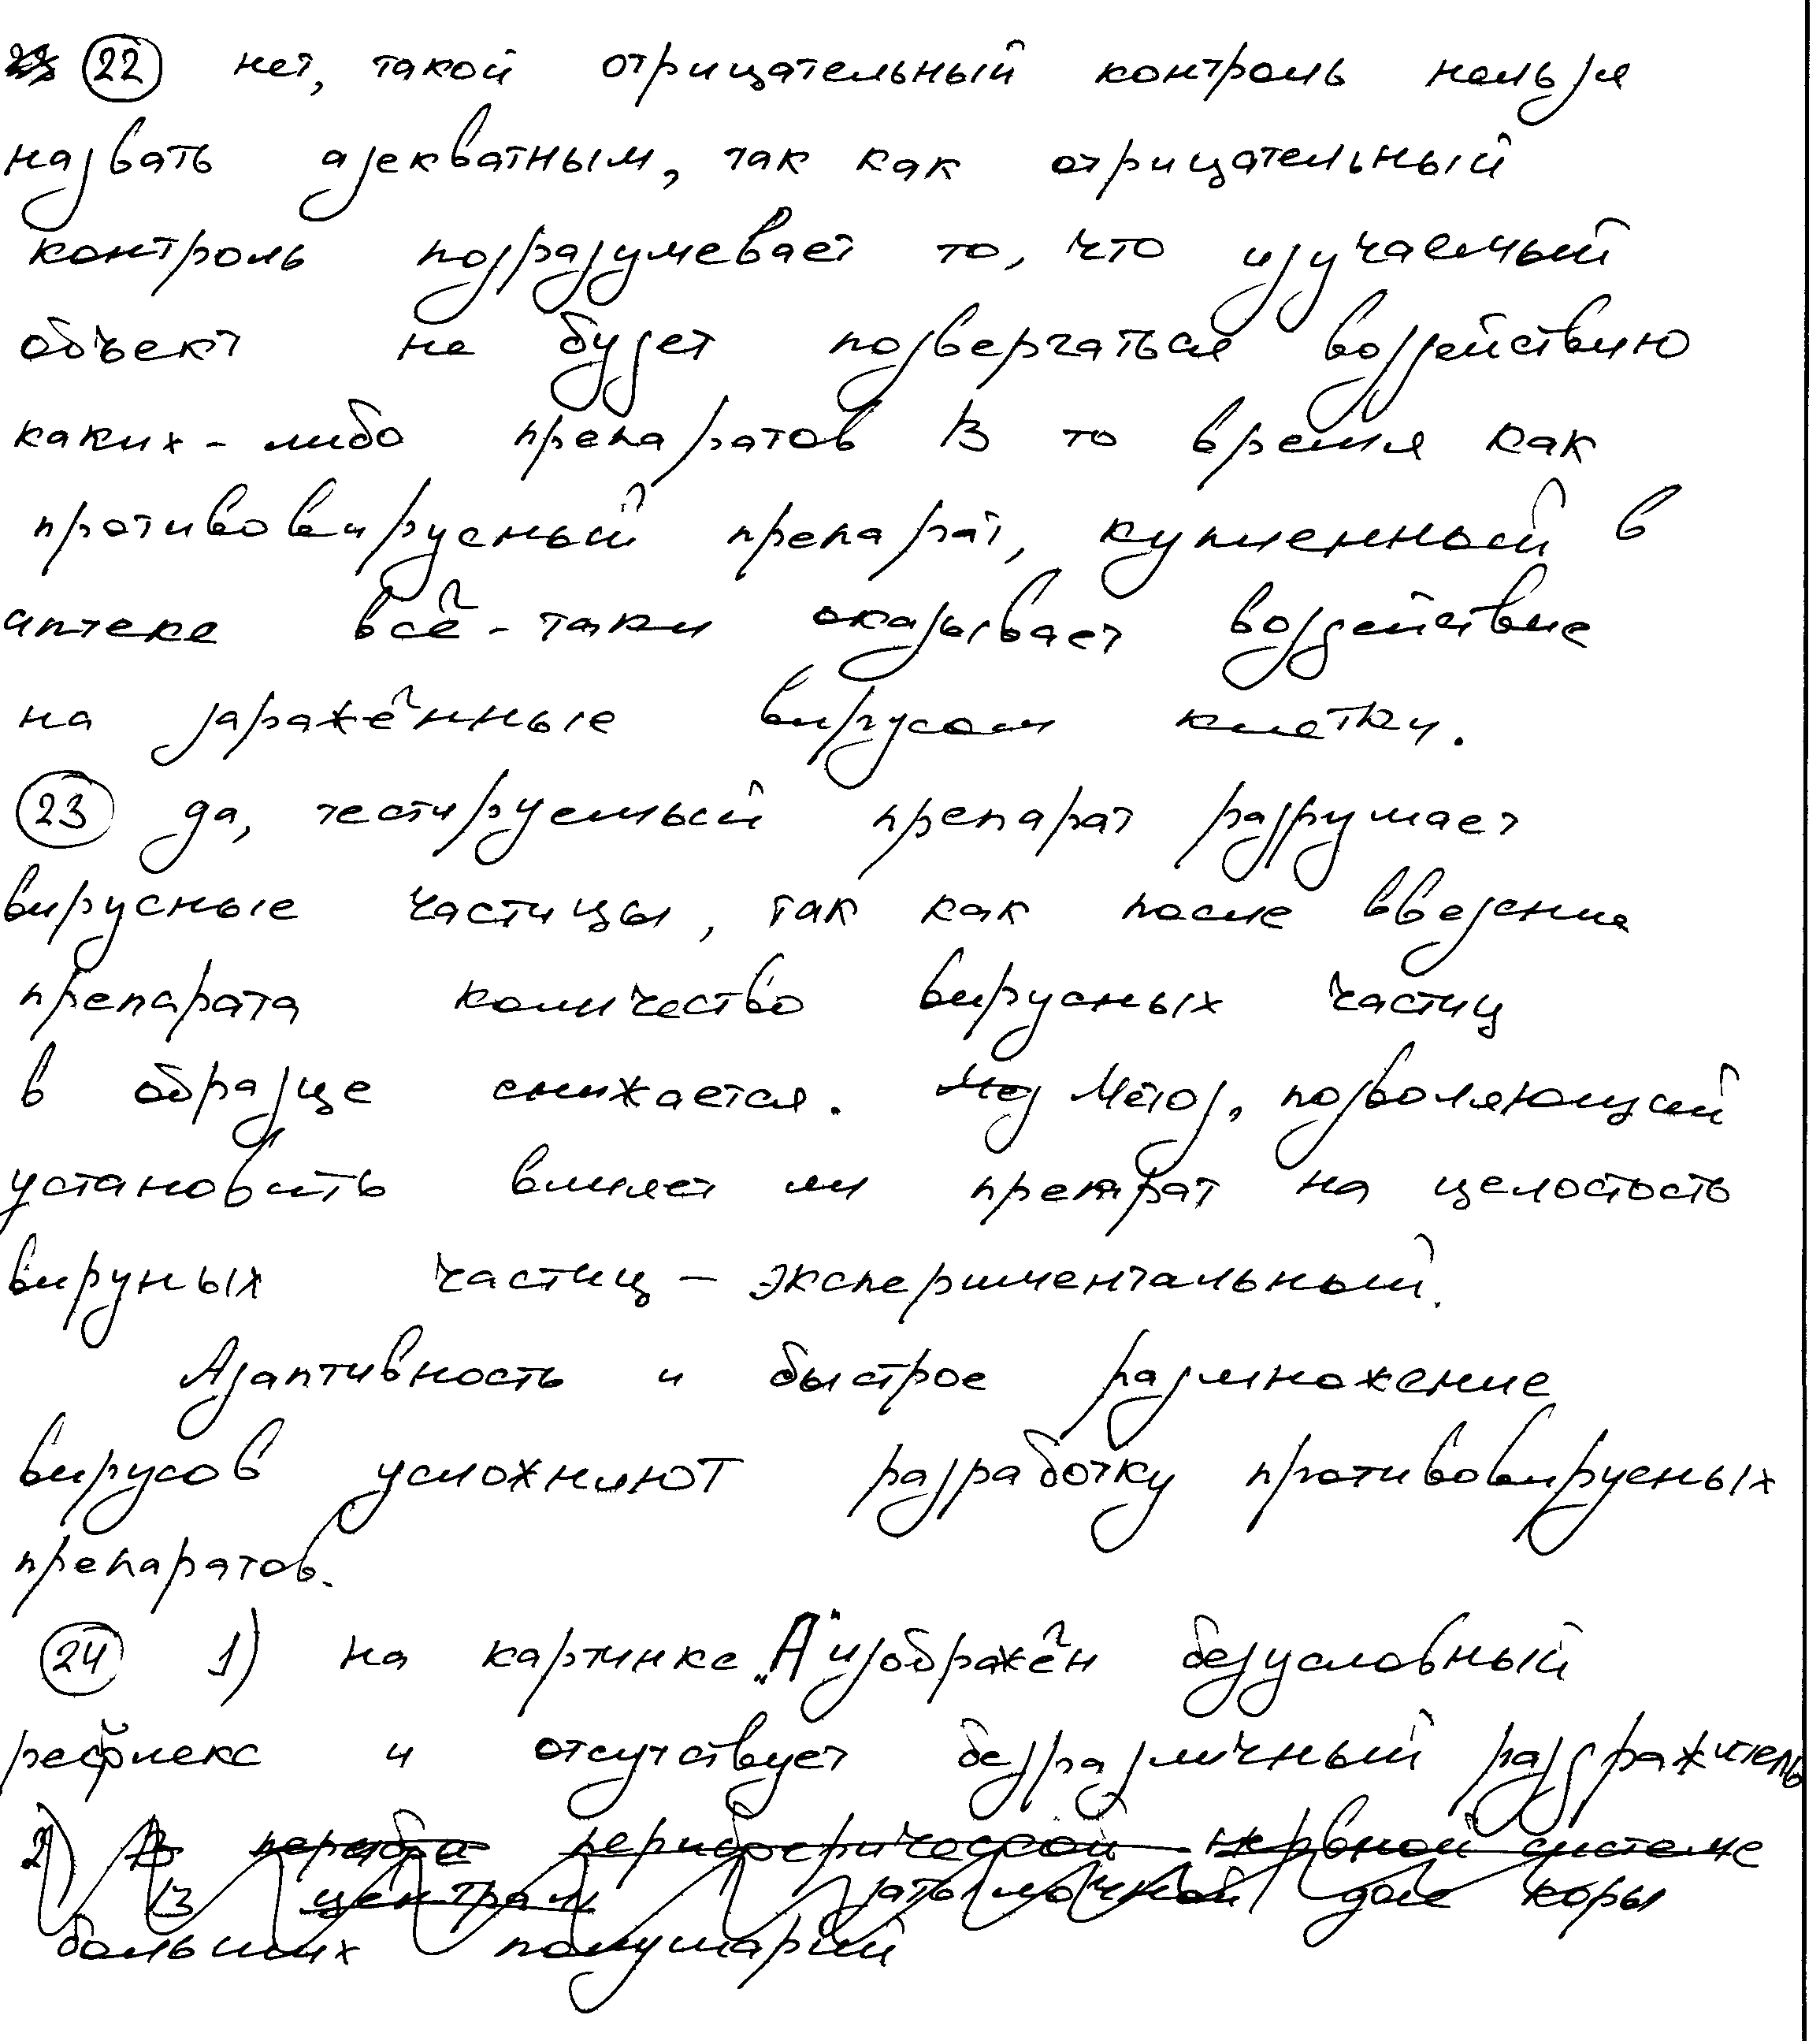 22 нет, такой отрицательный контроль нельзя
назвать адекватным, так как отрицательный
контроль подразумевает то, что изучаемый
объект не будет подвергаться воздействию
каких-либо препаратов В то время как
противовирусный препарат, купленный в
аптеке всё-таки оказывает воздействие
на заражённые вирусом клетки.
23 да, тестируемый препарат разрушает
вирусные частицы, так как после введения
препарата количество вирусных частиц
в образце снижается. Метод, позволяющий
установить влияет ли препарат на целостость
вируных частиц – экспериментальный.
Адаптивность и быстрое размножение
вирусов усложняют разработку противовирусных
препаратов.
24 1) на картинке „А" изображён безусловный
рефлекс и отсутствует безразличный раздражитель
2) В перифе периферической нервной системе
В централ затылочной доле коры
больших полушарий